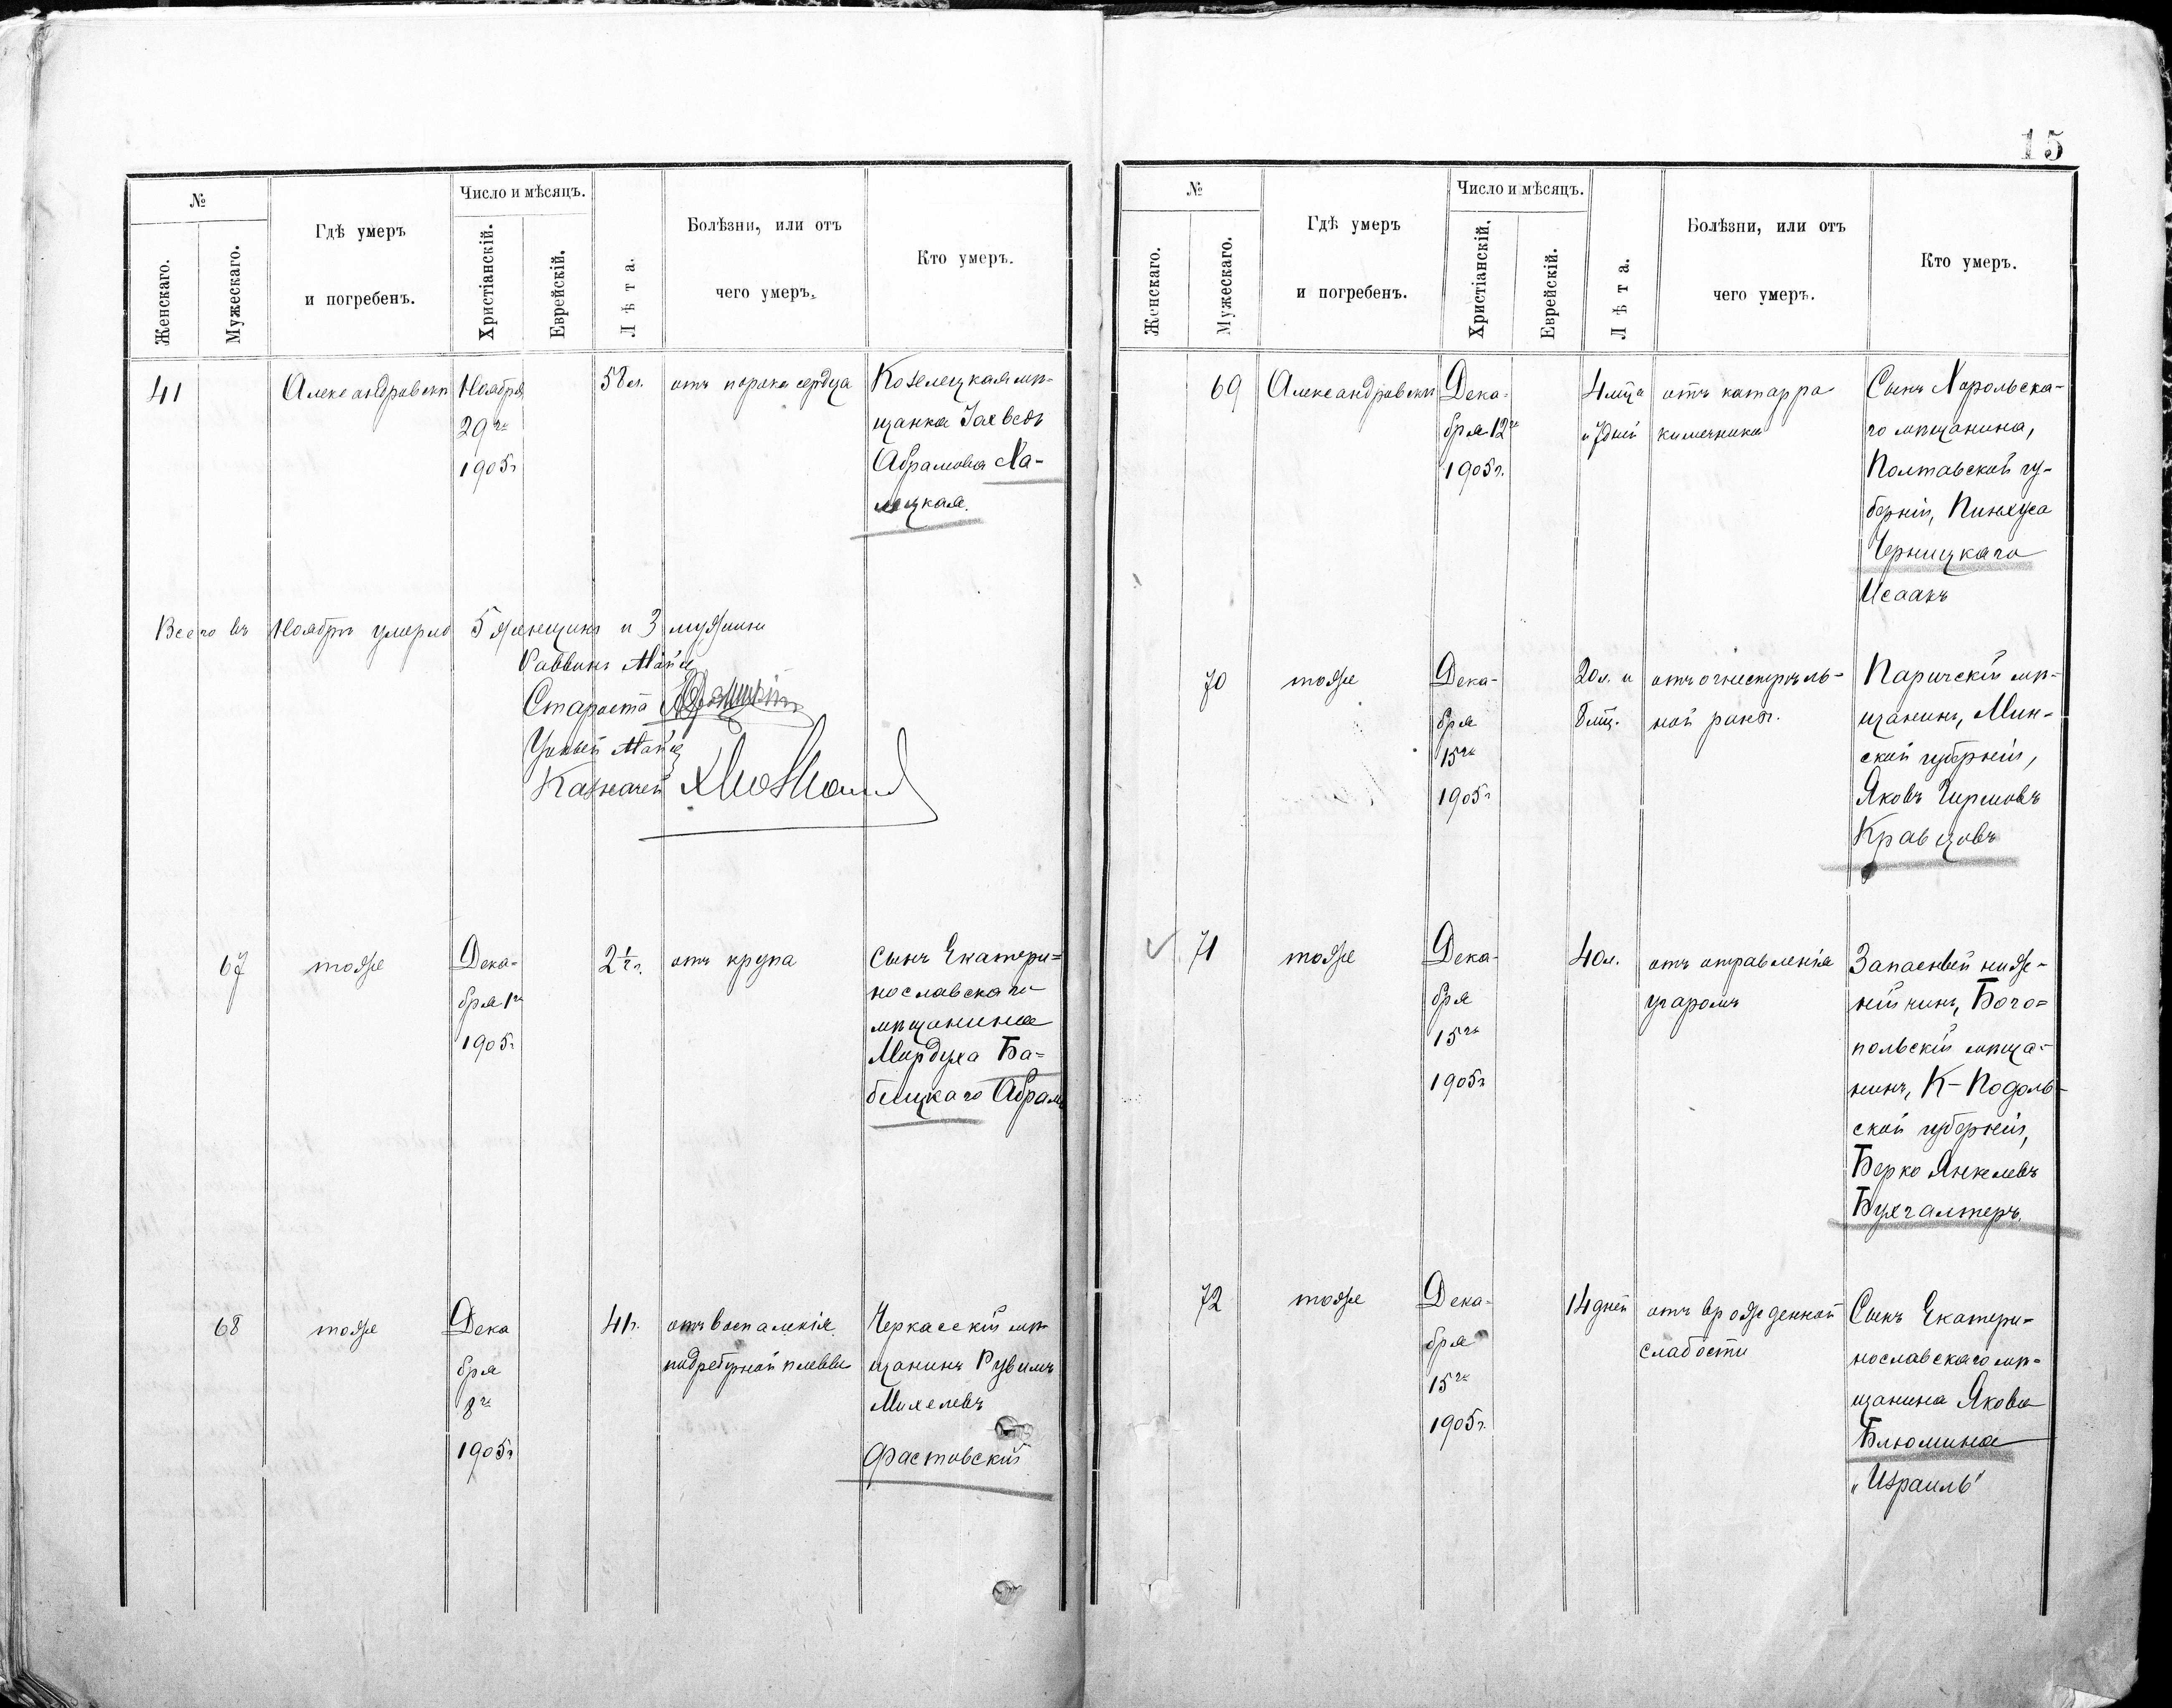 15
№
Женскаго.
Мужескаго.
Гдѣ умеръ
и погребенъ.
Число и мѣсяцъ.
Христіанскій.
Еврейскій.
Лѣта.
Болѣзни, или отъ
чего умеръ.
Кто умеръ.
41
Александровскъ
Ноября
29го
1905г
58л.
отъ порока сердца
Козелецкая мѣ-
щанка Іахведъ
Абрамова
Всего въ Ноябрѣ умерло 5 женщинъ и 3 мужчины
Раввинъ
Староста
Ученый
Казначей
67
тоже
Дека-
бря 1го
1905г
2½г.
отъ крупа
Сынъ Екатери-
нославскаго
мѣщанина
Мордуха Ба-
белицкаго Абрамъ
68
тоже
Дека
бря
8го
1905г
41г.
отъ воспаленія
подреберной плевы
Черкасскій мѣ-
щанинъ Рувимъ
Михелевъ
Фастовскій
№
Женскаго.
Мужескаго.
Гдѣ умеръ
и погребенъ.
Число и мѣсяцъ.
Христіанскій.
Еврейскій.
Лѣта.
Болѣзни, или отъ
чего умеръ.
Кто умеръ.
69
Александровскъ
Дека-
бря 12го
1905г.
4 мца
и 7 дней
отъ катарра
кишечника
Сынъ Хорольска-
го мѣщанина,
Полтавской гу-
берніи, Пинхуса
Черницкаго
Исаакъ
70
тоже
Дека-
бря
15го
1905г
20л. и
8 мц.
отъ огнестрѣль-
ной раны.
Паричскій мѣ-
щанинъ, Мин-
ской губерніи,
Яковъ Гиршовъ
Кравцовъ
71
тоже
Дека-
бря
15го
1905г
40л.
отъ отравленія
угаромъ
Запасный ниж-
ній чинъ, Бого-
польскій мѣща-
нинъ, К-Подоль-
ской губерніи,
Берко Янкелевъ
Бухгалтеръ.
72
тоже
Дека-
бря
15го
1905г.
14 дней
отъ врожденной
слабости
Сынъ Екатери-
нославскаго мѣ-
щанина Якова
Блюмина
„Израиль"